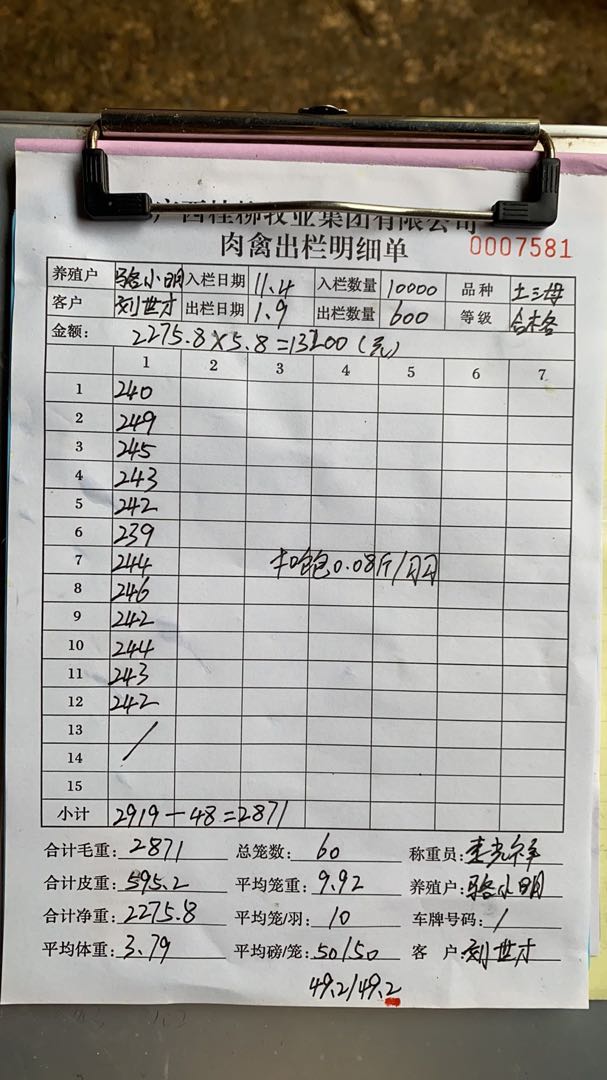 广西桂柳牧业集团有限公司
肉禽出栏明细单 0007581
养殖户 骆小明 入栏日期 11.4 入栏数量 10000 品种 土三母
客户 刘世才 出栏日期 1.9 出栏数量 600 等级 合格
金额: 2275.8×5.8=13200(元)
1 2 3 4 5 6 7
1 240
2 249
3 245
4 243
5 242
6 239
7 244 扣饱0.08斤/羽
8 246
9 242
10 244
11 243
12 242
13 /
14
15
小计 2919-48=2871
合计毛重: 2871 总笼数: 60 称重员:
合计皮重: 595.2 平均笼重: 9.92 养殖户: 骆小明
合计净重: 2275.8 平均笼/羽: 10 车牌号码: /
平均体重: 3.79 平均磅/笼: 50/50 客 户: 刘世才
49.2/49.2